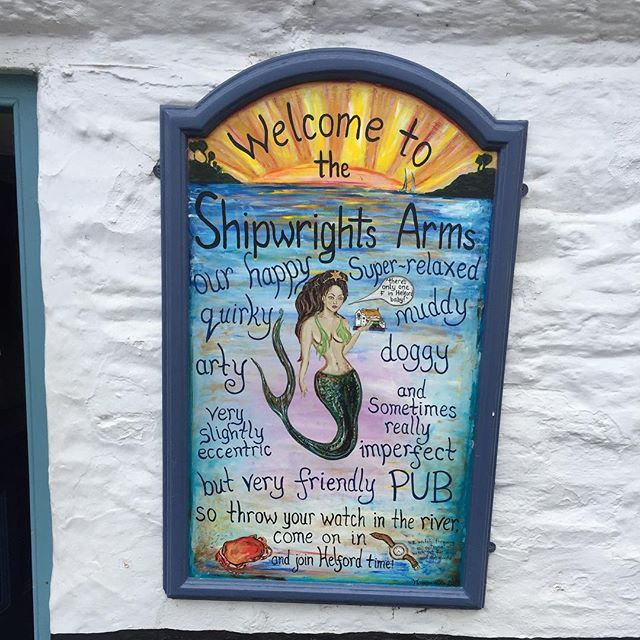 Welcome to
the
Shipwrights Arms
our happy Super-relaxed
there's
only one
F in Helford
baby!
quirky muddy
arty doggy
very
slightly
eccentric
and
Sometimes
really
imperfect
but very friendly PUB
so throw your watch in the river,
come on in
and join Helford time!